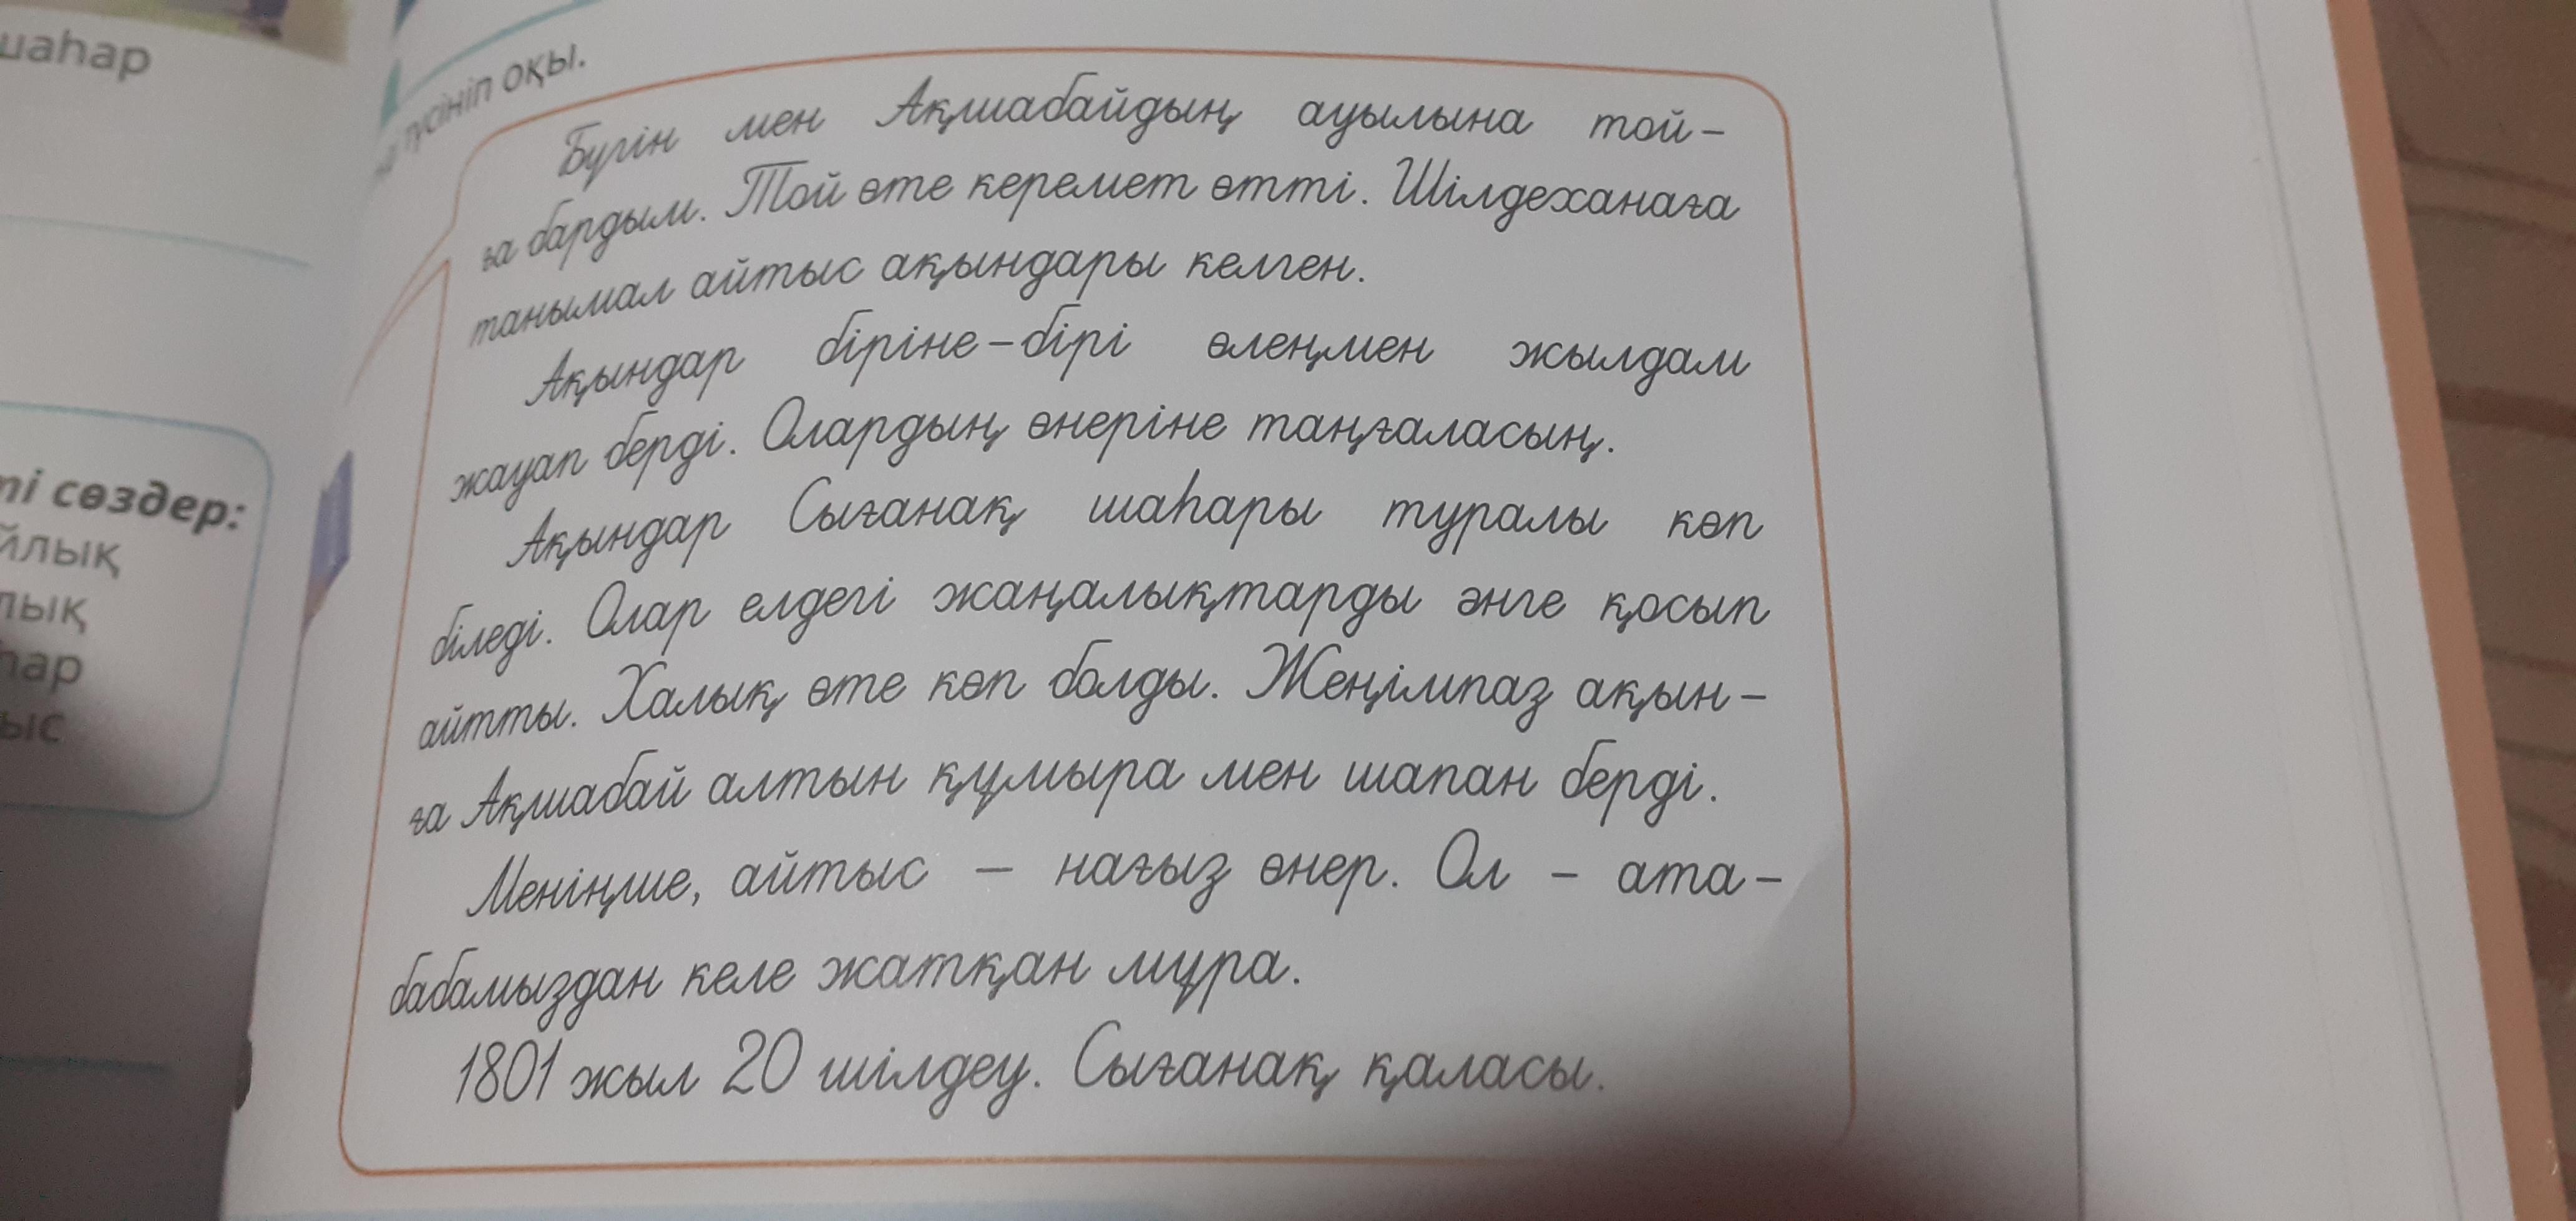 шаһар
түсініп оқы.
Бүгін мен Ақшабайдың ауылына той-
ға бардым. Той өте керемет өтті. Шілдеханаға
танымал айтыс ақындары келген.
Ақындар біріне-бірі өлеңмен жылдам
жауап берді. Олардың өнеріне таңғаласың.
Ақындар Сығанақ шаһары туралы көп
біледі. Олар елдегі жаңалықтарды әнге қосып
айтты. Халық өте көп болды. Жеңімпаз ақын-
ға Ақшабай алтын құмыра мен шапан берді.
Меніңше, айтыс – нағыз өнер. Ол – ата-
бабамыздан келе жатқан мұра.
1801 жыл 20 шілдеу. Сығанақ қаласы.
сөздер: